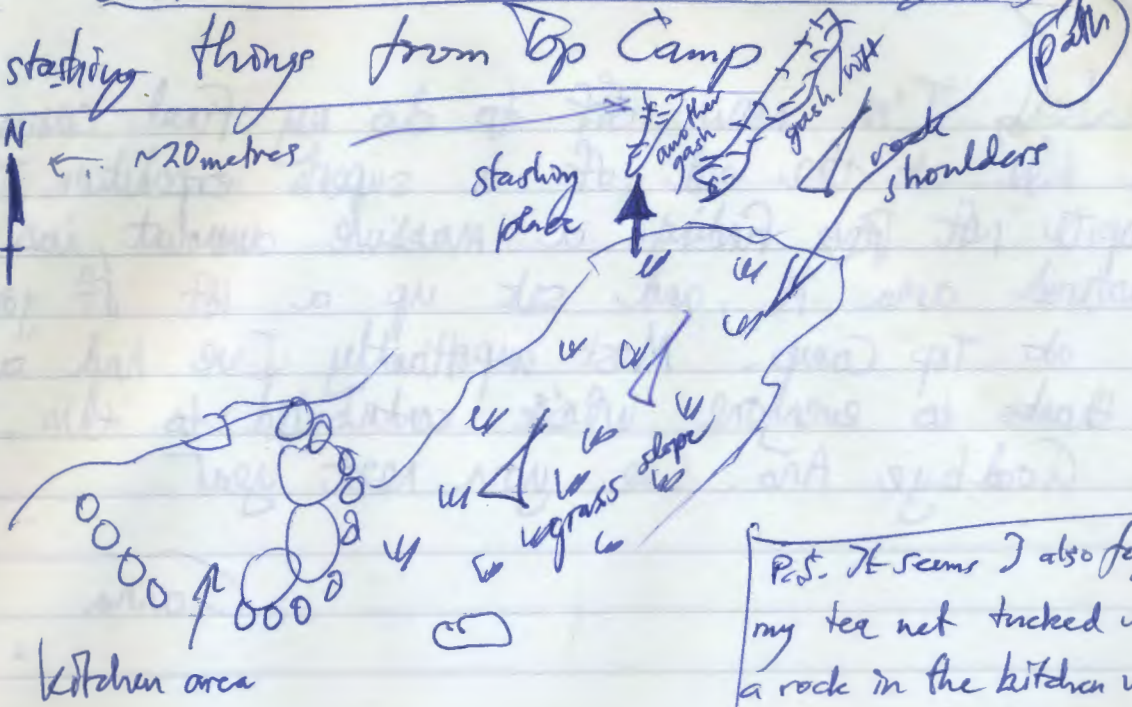 stashing things from Top Camp
path
N
~20 metres
another gash
gash/rift
rock shoulders
stashing place
grass slope
kitchen area
P.S. It seems I also
my tea net tucked
a rock in the kitchen